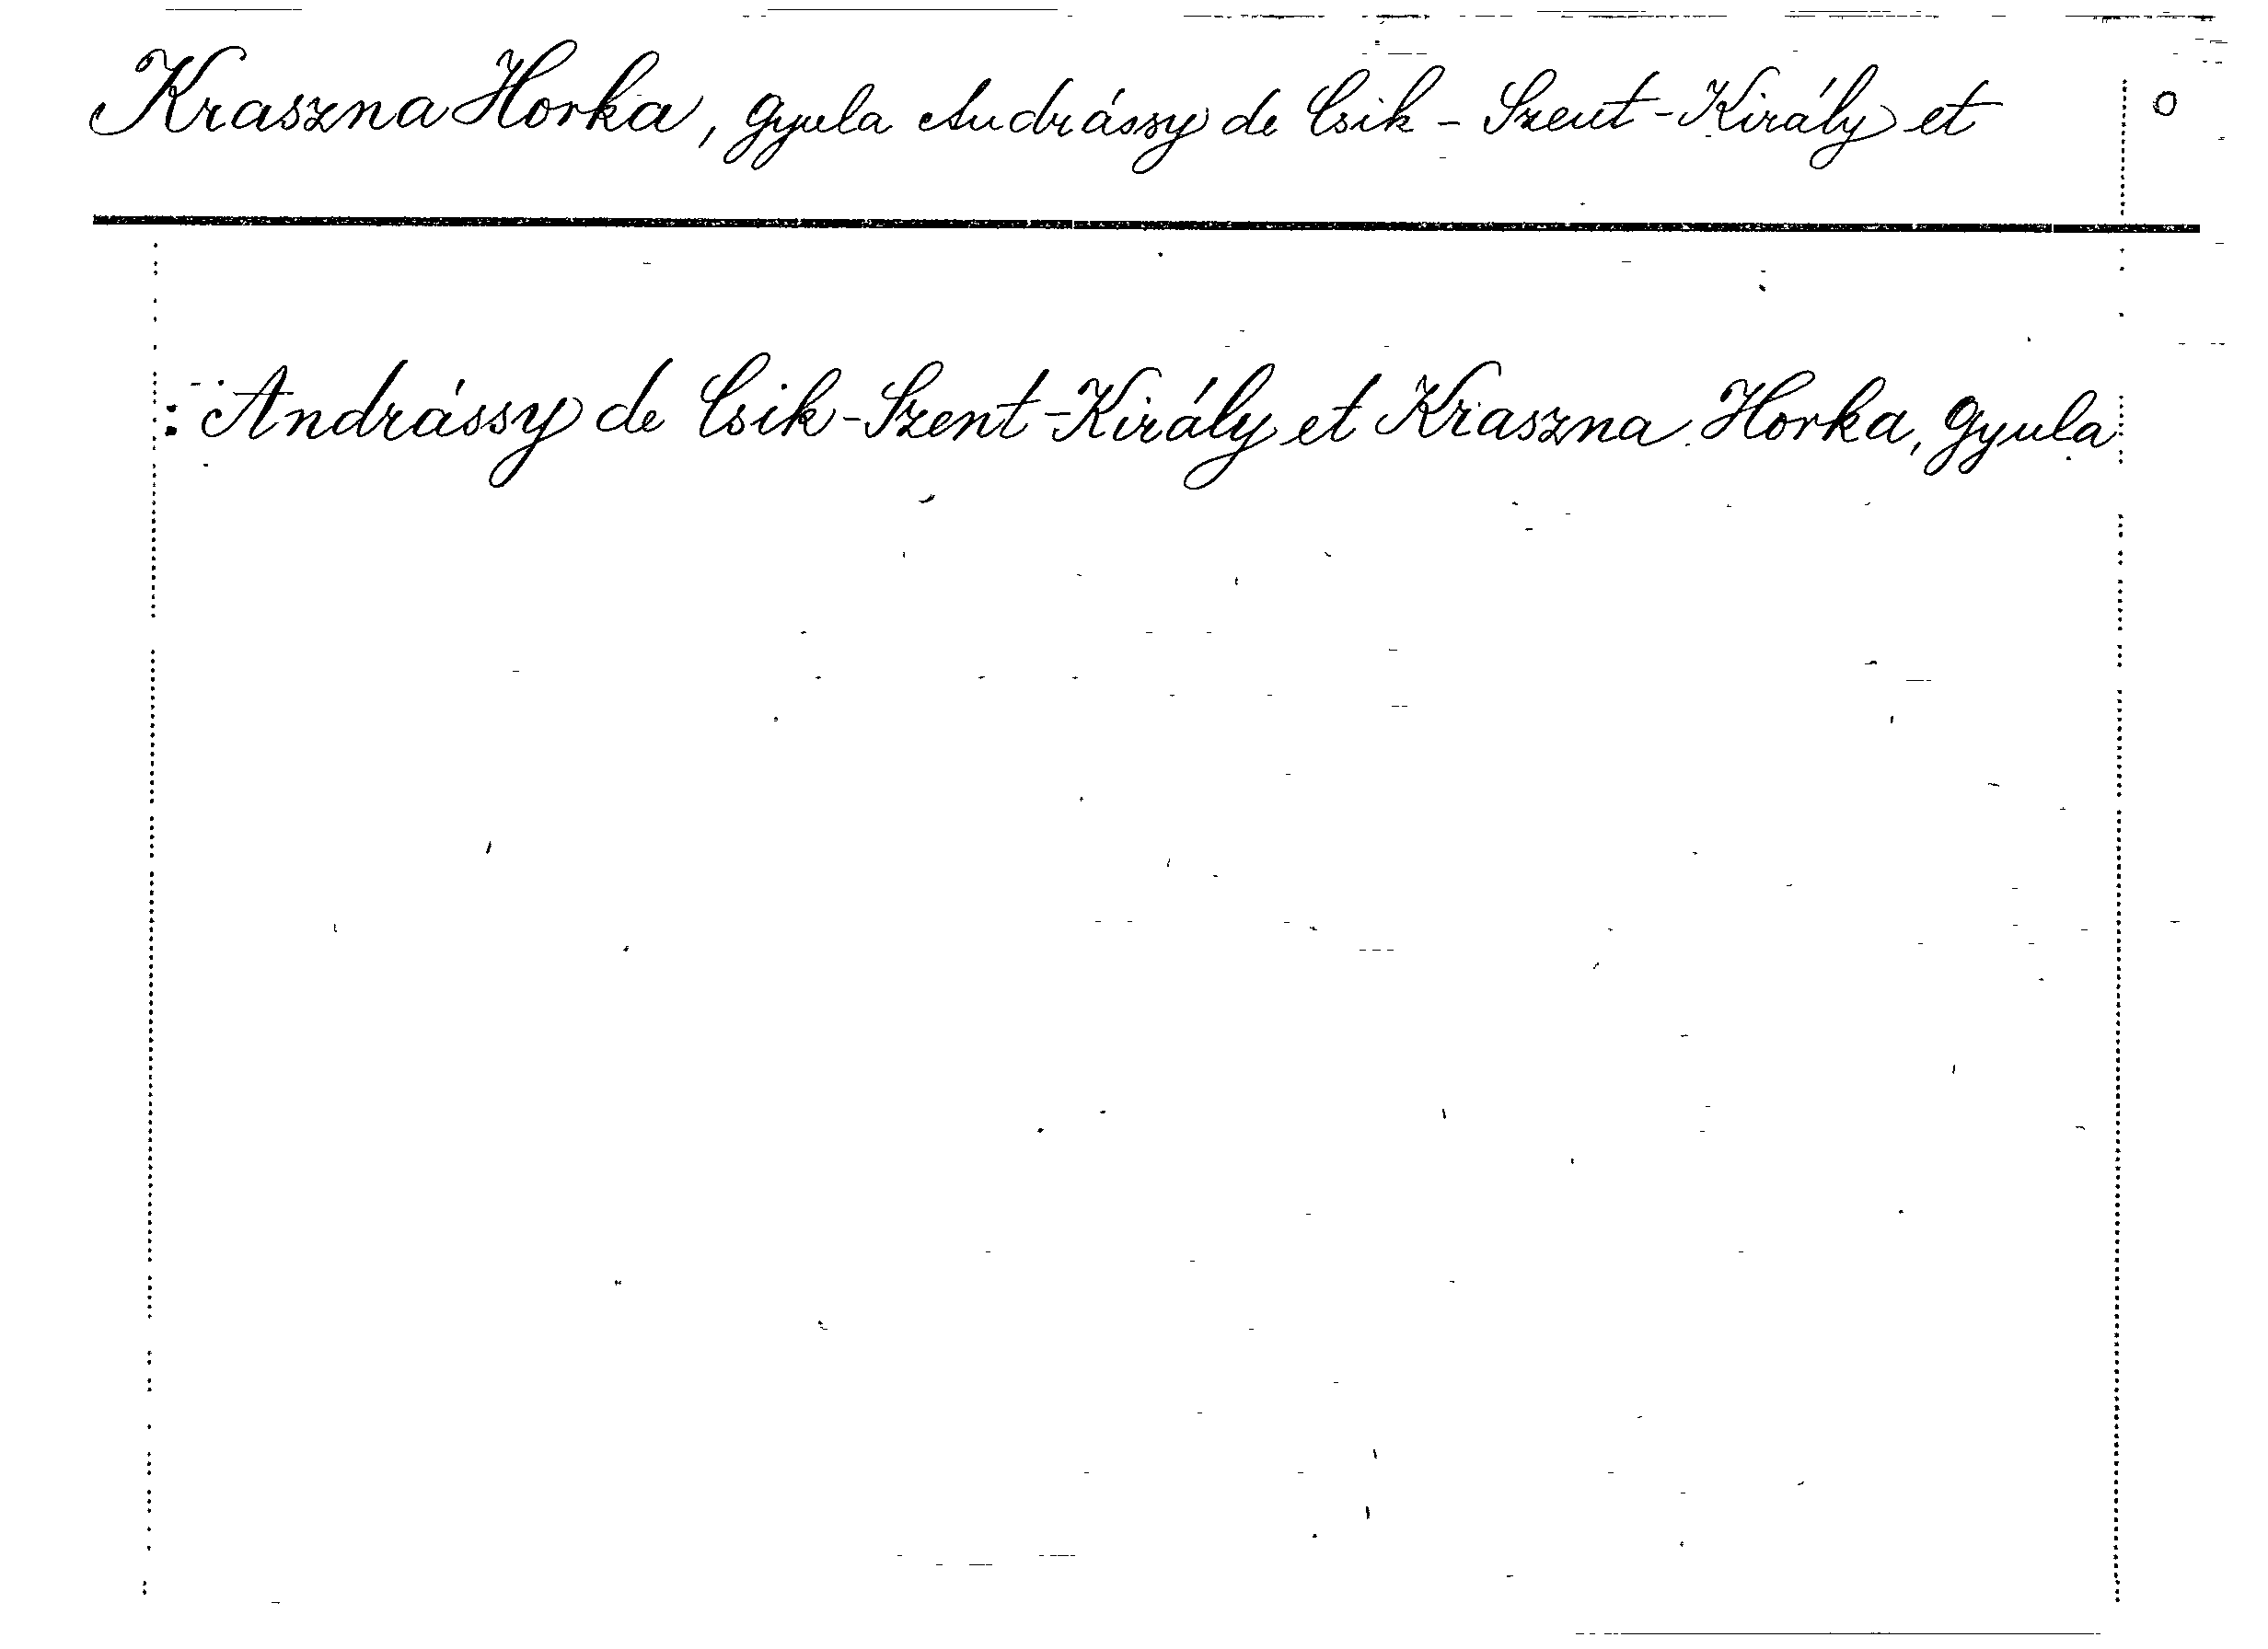 Kraszna Horka, Gyula Andrássy de Csik-Szent-Király et
: Andrássy de Csik-Szent-Király et Kraszna Horka, Gyula